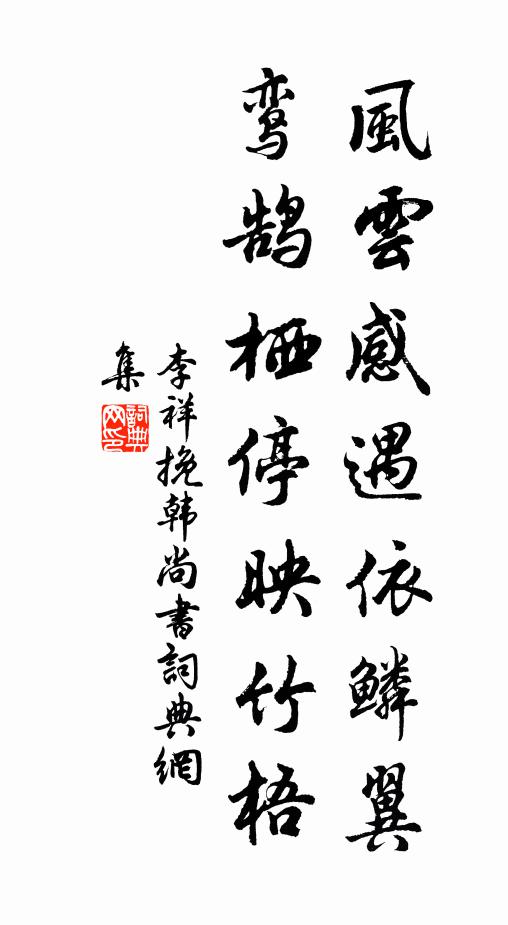 風雲感遇依鳞翼
鸾鹄栖停映竹梧
李祥挽韩尚書詞典網
集
詞典网印